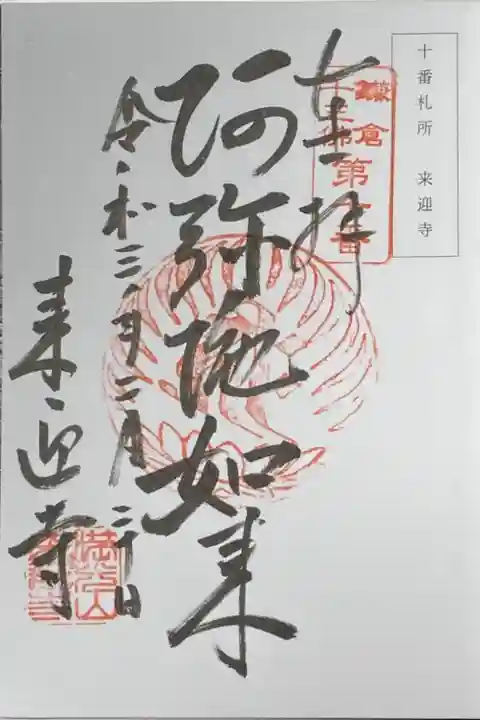 十番札所　来迎寺
鎌倉
十三佛
第十番
奉拝
阿弥陀如来
令和三年二月二十日
来迎寺
満光山